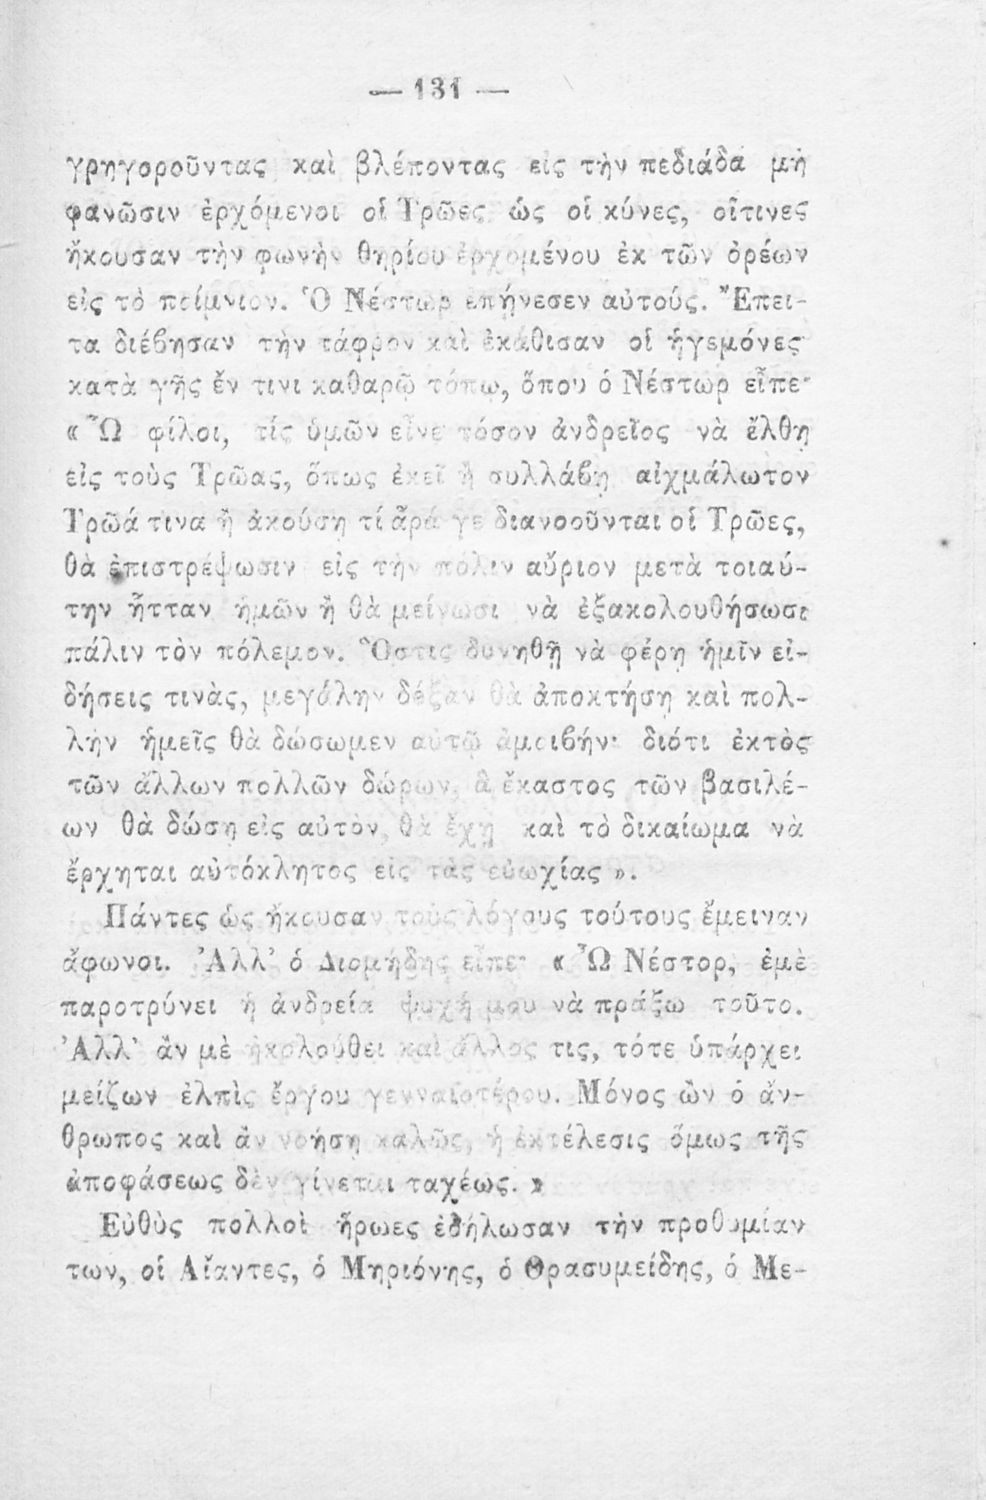 — 131 —
γρηγοροῦντας καὶ βλέποντας εἰς τὴν πεδιάδα μὴ
φανῶσιν ἐρχόμενοι οἱ Τρῶες ὡς οἱ κύνες, οἵτινες
ἤκουσαν τὴν φωνὴν θηρίου ἐρχομένου ἐκ τῶν ὀρέων
εἰς τὸ ποίμνιον. Ὁ Νέστωρ ἐπῄνεσεν αὐτούς. Ἔπει-
τα διέβησαν τὴν τάφρον καὶ ἐκάθισαν οἱ ἡγεμόνες
κατὰ γῆς ἔν τινι καθαρῷ τόπῳ, ὅπου ὁ Νέστωρ εἶπε·
« Ὦ φίλοι, τίς ὑμῶν εἶνε τόσον ἀνδρεῖος νὰ ἔλθῃ
εἰς τοὺς Τρῶας, ὅπως ἐκεῖ ἢ συλλάβῃ αἰχμάλωτον
Τρῶά τινα ἢ ἀκούσῃ τί ἆρά γε διανοοῦνται οἱ Τρῶες,
θὰ ἐπιστρέψωσιν εἰς τὴν πόλιν αὔριον μετὰ τοιαύ-
την ἧτταν ἡμῶν ἢ θὰ μείνωσι νὰ ἐξακολουθήσωσι
πάλιν τὸν πόλεμον. Ὅστις δυνηθῇ νὰ φέρῃ ἡμῖν εἰ-
δήσεις τινὰς, μεγάλην δόξαν θὰ ἀποκτήσῃ καὶ πολ-
λὴν ἡμεῖς θὰ δώσωμεν αὐτῷ ἀμοιβήν· διότι ἐκτὸς
τῶν ἄλλων πολλῶν δώρων, ἃ ἕκαστος τῶν βασιλέ-
ων θὰ δώσῃ εἰς αὐτὸν, θὰ ἔχῃ καὶ τὸ δικαίωμα νὰ
ἔρχηται αὐτόκλητος εἰς τὰς εὐωχίας ».
Πάντες ὡς ἤκουσαν τοὺς λόγους τούτους ἔμειναν
ἄφωνοι. Ἀλλ' ὁ Διομήδης εἶπε· « Ὦ Νέστορ, ἐμὲ
παροτρύνει ἡ ἀνδρεία ψυχή μου νὰ πράξω τοῦτο.
Ἀλλ' ἂν μὲ ἠκολούθει καὶ ἄλλος τις, τότε ὑπάρχει
μείζων ἐλπὶς ἔργου γενναιοτέρου. Μόνος ὢν ὁ ἄν-
θρωπος καὶ ἂν νοήσῃ καλῶς, ἡ ἐκτέλεσις ὅμως τῆς
ἀποφάσεως δὲν γίνεται ταχέως. »
Εὐθὺς πολλοὶ ἥρωες ἐδήλωσαν τὴν προθυμίαν
των, οἱ Αἴαντες, ὁ Μηριόνης, ὁ Θρασυμείδης, ὁ Με-